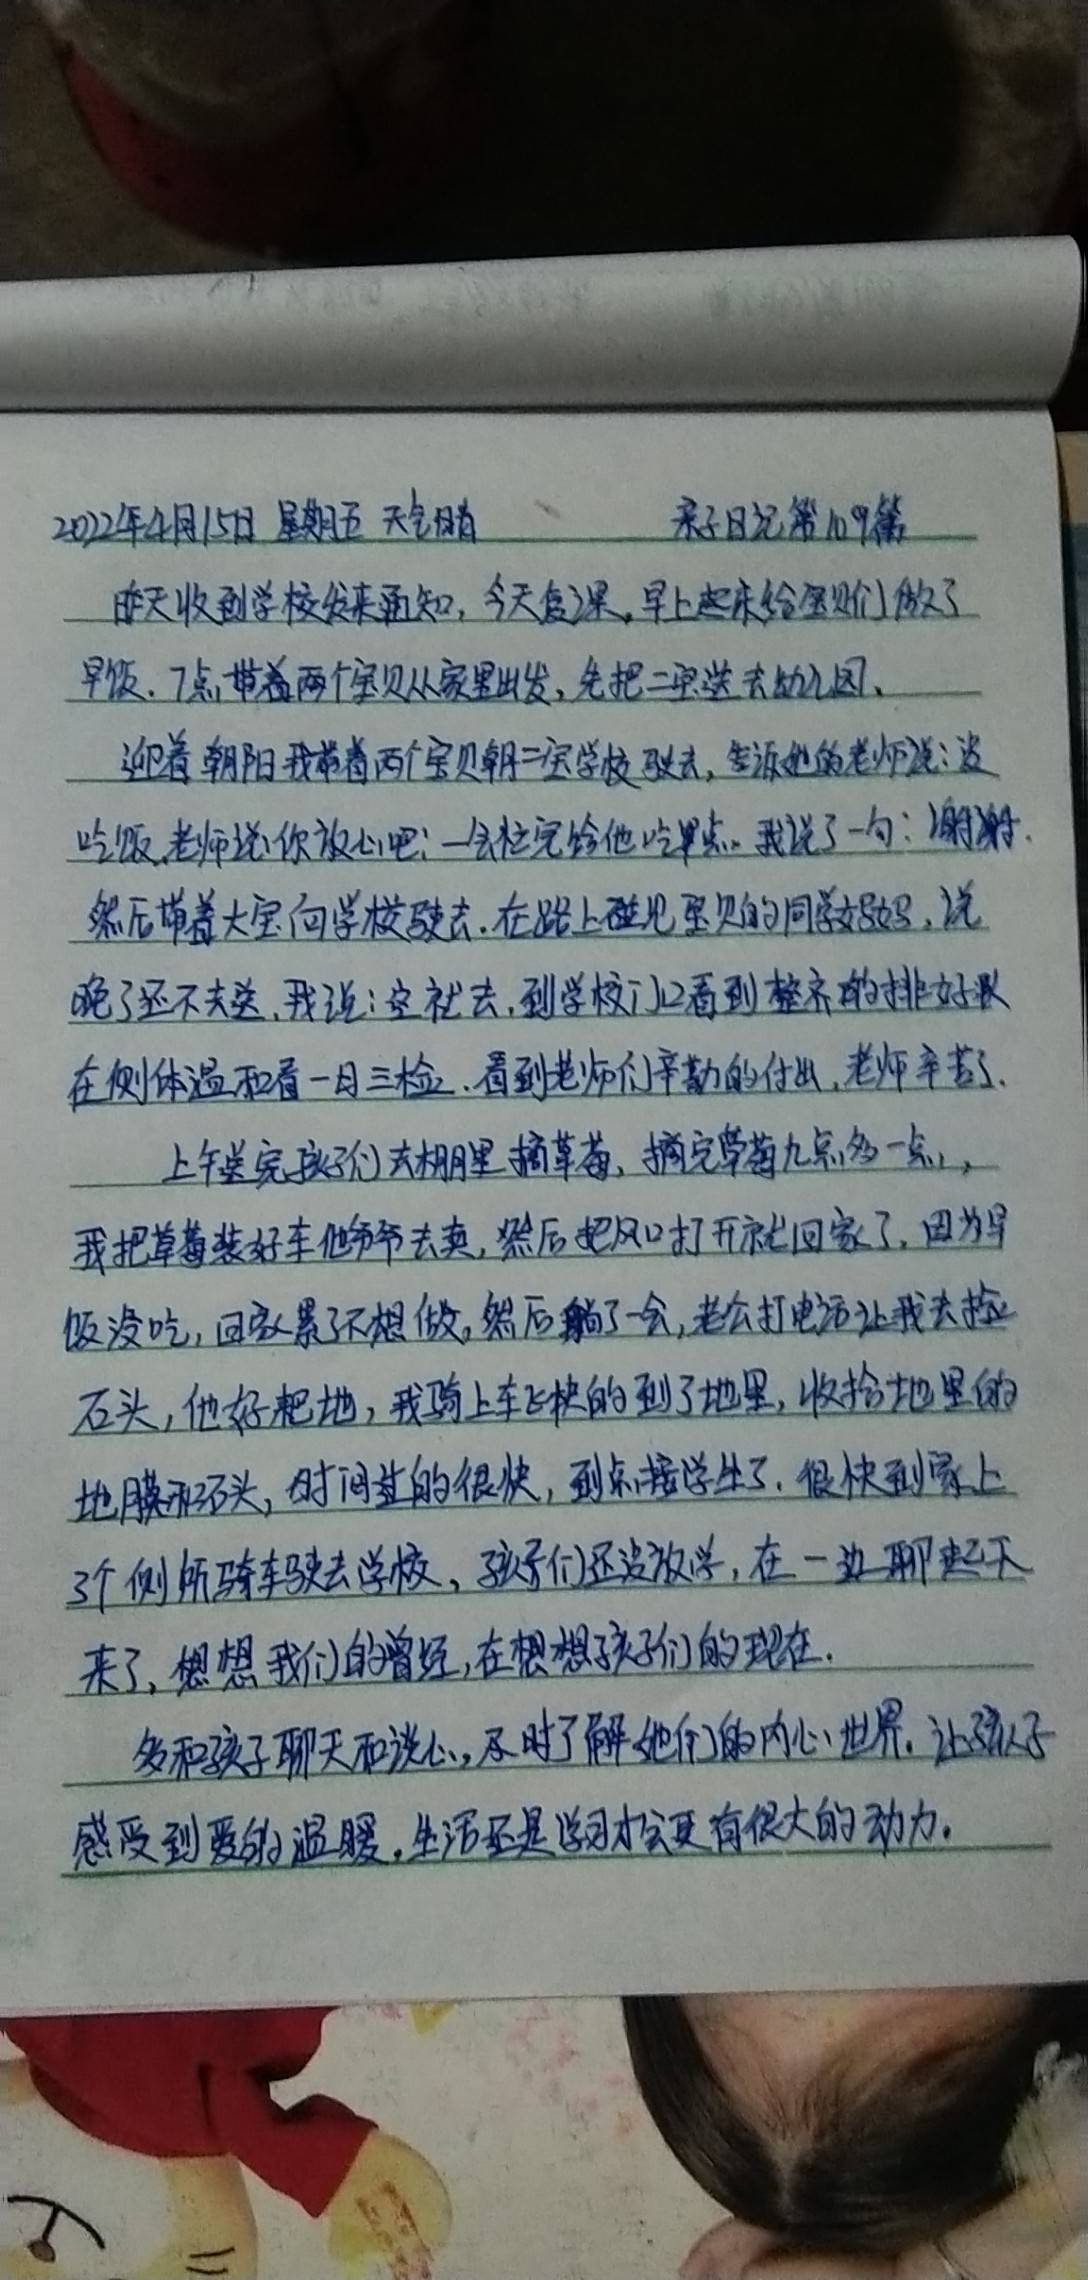 2022年4月15日 星期五 天气晴 亲子日记第109篇
昨天收到学校发来通知,今天复课,早上起来给宝贝们做了
早饭.7点带着两个宝贝从家里出发,先把二宝送去幼儿园.
迎着朝阳我带着两个宝贝朝二宝学校驶去,告诉她的老师说:没
吃饭,老师说:你放心吧;一会忙完给他吃早点。我说了一句:谢谢.
然后带着大宝向学校驶去.在路上碰见宝贝的同学妈妈,说
晚了还不去送,我说:这就去,到学校门口看到整齐的排好队
在侧体温和看一日三检.看到老师们辛勤的付出,老师辛苦了.
上午送完孩子们去棚里摘草莓,摘完草莓九点多一点,
我把草莓装好车他爷爷去卖,然后把风口打开就回家了,因为早
饭没吃,回家累了不想做,然后躺了一会,老公打电话让我去捡
石头,他好耙地,我骑上车飞快的到了地里,收拾地里的
地膜和石头,时间过的很快,到点接学生了.很快到家上
了个侧所骑车驶去学校,孩子们还没放学,在一边聊起天
来了,想想我们的曾经,在想想孩子们的现在.
多和孩子聊天和谈心,及时了解她们的内心世界.让孩子
感受到爱的温暖.生活还是学习才会更有很大的动力.